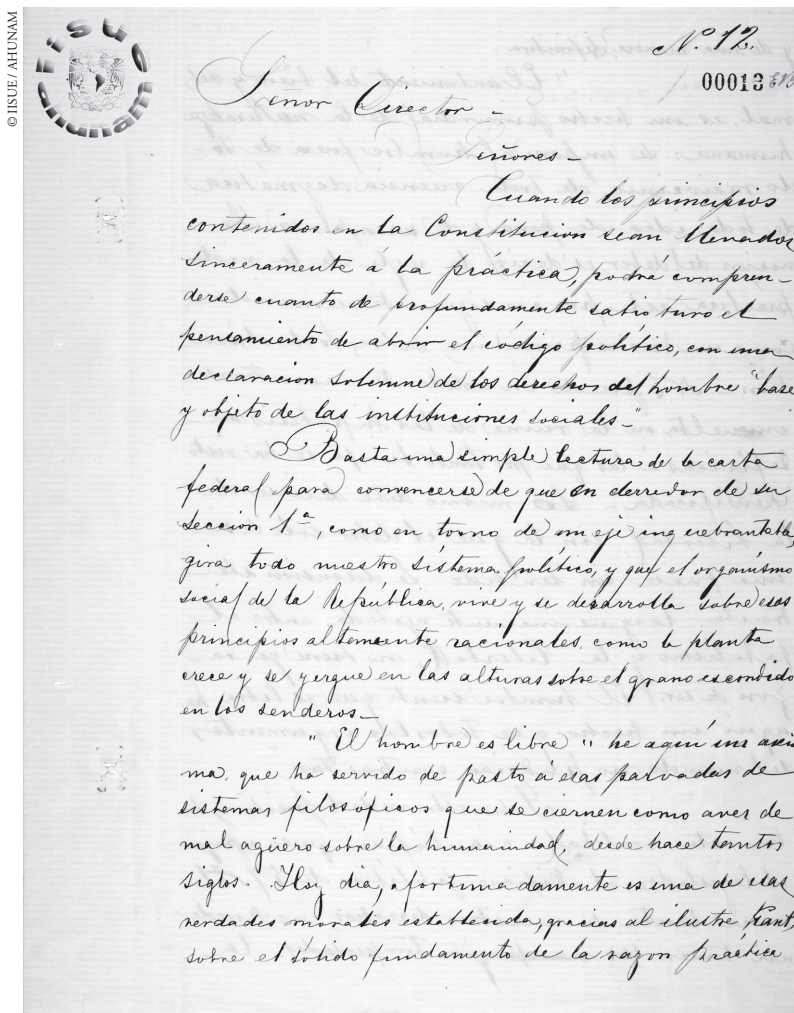 © IISUE / AHUNAM
iisue
ahunam
Nº 12.
00013
Señor Director –
Señores –
Cuando los principios
contenidos en la Constitucion sean llevados
sinceramente á la práctica, podrá compren–
derse cuanto de profundamente sabio tuvo el
pensamiento de abrir el código político, con una
declaracion solemne de los derechos del hombre "base
y objeto de las instituciones sociales–"
Basta una simple lectura de la carta
federal para convencerse de que en derredor de su
seccion 1ª, como en torno de un eje inquebrantable,
gira todo nuestro sistema político, y que el organismo
social de la República, vive y se desarrolla sobre esos
principios altamente racionales, como la planta
crece y se yergue en las alturas sobre el grano escondido
en los senderos –
"El hombre es libre" he aquí un axio
ma, que ha servido de pasto á esas parvadas de
sistemas filosóficos que se ciernen como aves de
mal agüero sobre la humanidad, desde hace tantos
siglos. Hoy dia, afortunadamente es una de esas
verdades morales establecida, gracias al ilustre Kant,
sobre el sólido fundamento de la razon práctica